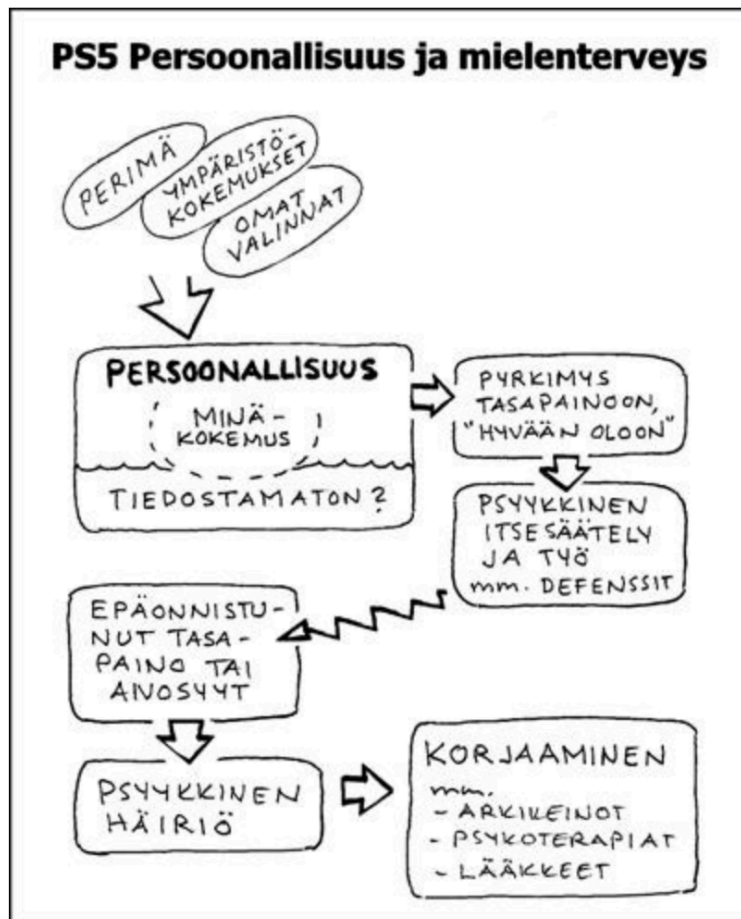 PS5 Persoonallisuus ja mielenterveys
PERIMÄ
YMPÄRISTÖ-
KOKEMUKSET
OMAT
VALINNAT
PERSOONALLISUUS
MINÄ-
KOKEMUS
TIEDOSTAMATON?
PYRKIMYS
TASAPAINOON,
"HYVÄÄN OLOON"
PSYYKKINEN
ITSESÄÄTELY
JA TYÖ
mm. DEFENSSIT
EPÄONNISTU-
NUT TASA-
PAINO TAI
ANOSYYT
PSYYKKINEN
HÄIRIÖ
KORJAAMINEN
mm.
- ARKIKEINOT
- PSYKOTERAPIAT
- LÄÄKKEET